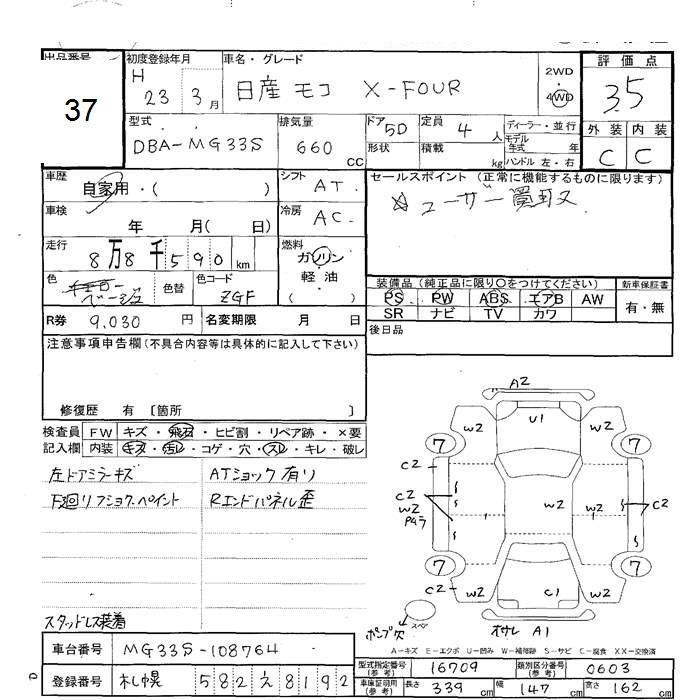 出品番号
37
初度登録年月
H 23 3 月
車名・グレード
日産 モコ X-FOUR
2WD
4WD
評価点
3.5
外装 内装
C C
型式
DBA-MG33S
排気量
660 CC
ドア 5D
形状
定員 4 人
積載 kg
ディーラー・並行
モデル
年式 年
ハンドル 左・右
車歴
自家用・( )
シフト AT
車検
年 月( 日)
冷房 AC
セールスポイント (正常に機能するものに限ります)
☆ユーザー買取
走行
8万8千590 km
燃料
ガソリン
軽油
( )
色
ベージュ
色替
色コード
ZGF
装備品 (純正品に限り○をつけてください)
新車保証書
PS PW ABS エアB AW
SR ナビ TV カワ
有・無
R券 9,030 円
名変期限 月 日
後日品
注意事項申告欄(不具合内容等は具体的に記入して下さい)
修復歴 有 〔箇所 〕
検査員
記入欄
FW キズ・飛石・ヒビ割・リペア跡・×要
内装 キズ・汚レ・コゲ・穴・スレ・キレ・破レ
左ドアミラーキズ
ATショック有り
F廻リフショクペイント
Rエンドパネル歪
スタッドレス装着
A2
W2 U1 W2
7 7
C2
C2
W2
W2 W2 C2
7 7
C2 W2 C1 W2
スペア
オサレ A1
A-キズ E-エクボ U-凹み W-補修跡 S-サビ C-腐食 XX-交換済
車台番号 MG33S-108764
登録番号 札幌 582え8192
型式指定番号
(参考)
16709
類別区分番号
(参考)
0603
車庫証明用
(参考)
長さ 339 cm 幅 147 cm 高さ 162 cm